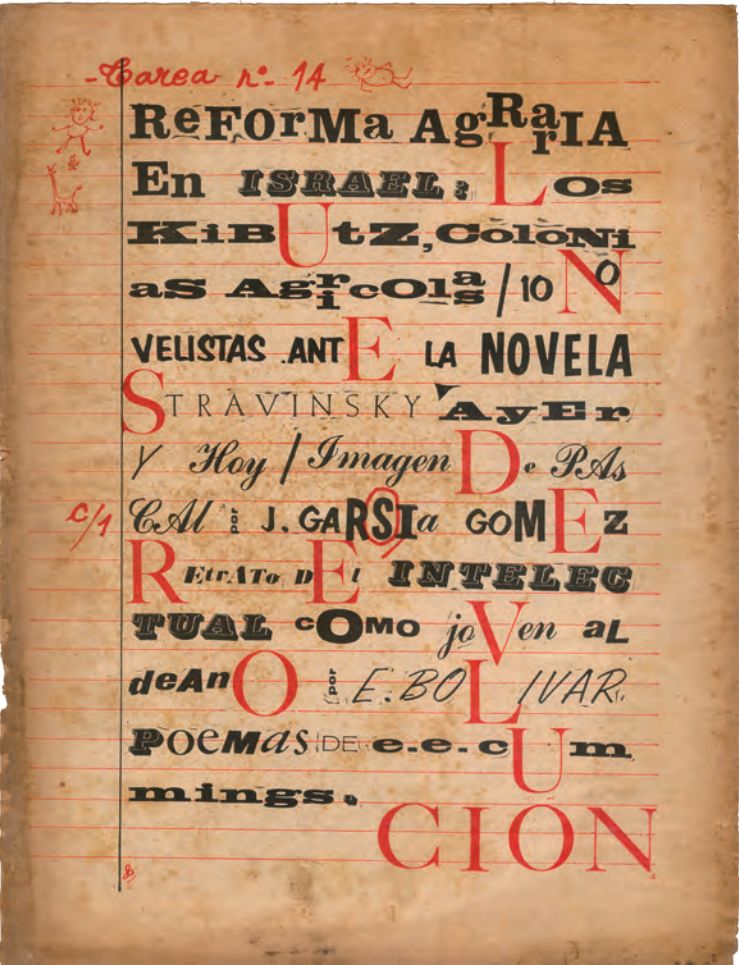 -Tarea nº- 14
ReFOrMa AgRarIA
En ISRAEL: LOs
KiBUtZ, COlONi
aS AgricOlas / 10 NO
VELISTAS ANTE LA NOVELA
STRAVINSKY AyEr
Y Hoy / Imagen De PAs
c/1 CAl por J. GARSIa GOMEZ
REtrATo DEl INTELEC
TUAL cOMO joVen aL
deAnO por E. BOLIVAR.
POeMas DE e.e.cUm
mings.
CION